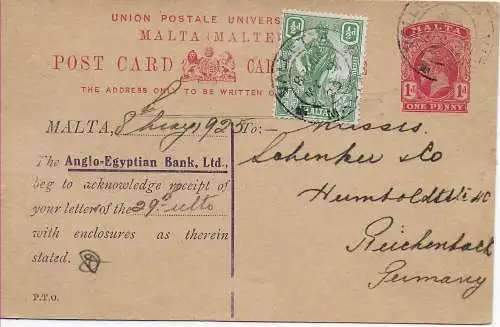 UNION POSTALE UNIVERS
MALTA (MALTE
POST CARD
CAR
THE ADDRESS ONLY TO BE WRITTEN O
MALTA
1d 1d
ONE PENNY
½d ½d
MALTA, 8th May 1925 To:— Messrs.
Schenker & Co
The Anglo-Egyptian Bank, Ltd.,
beg to acknowledge receipt of
your letter of the 29th ulto
with enclosures as therein
stated.
Reichenbach
Germany
P.T.O.